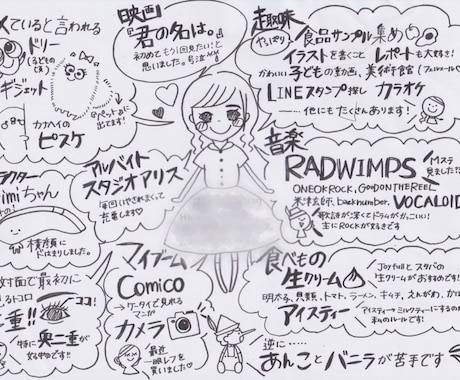 ていると言われる
ドリー
ギジェット
ペット
出てます!
カナヘイの
ピスケ
映画
『君の名は。』
初めてもう1回見たい!と
思いました。号泣
趣味
やっぱり
食品サンプル集め
イラストを書くこと
レポートも大好き!
かわいい
子どもの動画、美術午館
LINEスタンプ探し
カラオケ
……他にもたくさんあります!
アルバイト
スタジオアリス
毎回いやされまくって
充暑します
音楽
RADWIMPS
見ました!
ONEOKROCK, GOODONTHEREEL
米津玄師、back number、VOCALOID
歌詞が深くてドラムがかっこいい!
主にROCKが好きです
ラクター
rimiちゃん
横顔に
ドはまりしました。
対面で最初に
見るトコロ
ココ!
二重!!
特に奥二重が
好みです!!
マイブーム
Comico
→ケータイで見れる
マンガ
カメラ
最近
一眼レフを
買いました
食べもの
生クリーム
Joyfullとスタバの
生クリームがおすすめです!
明太子、貝類、トマト、ラーメン、キムチ、えんがわ、か
アイスティー
アイスティー→ミルクティーにするのが
私のルールです!
逆に……
あんことバニラが苦手です